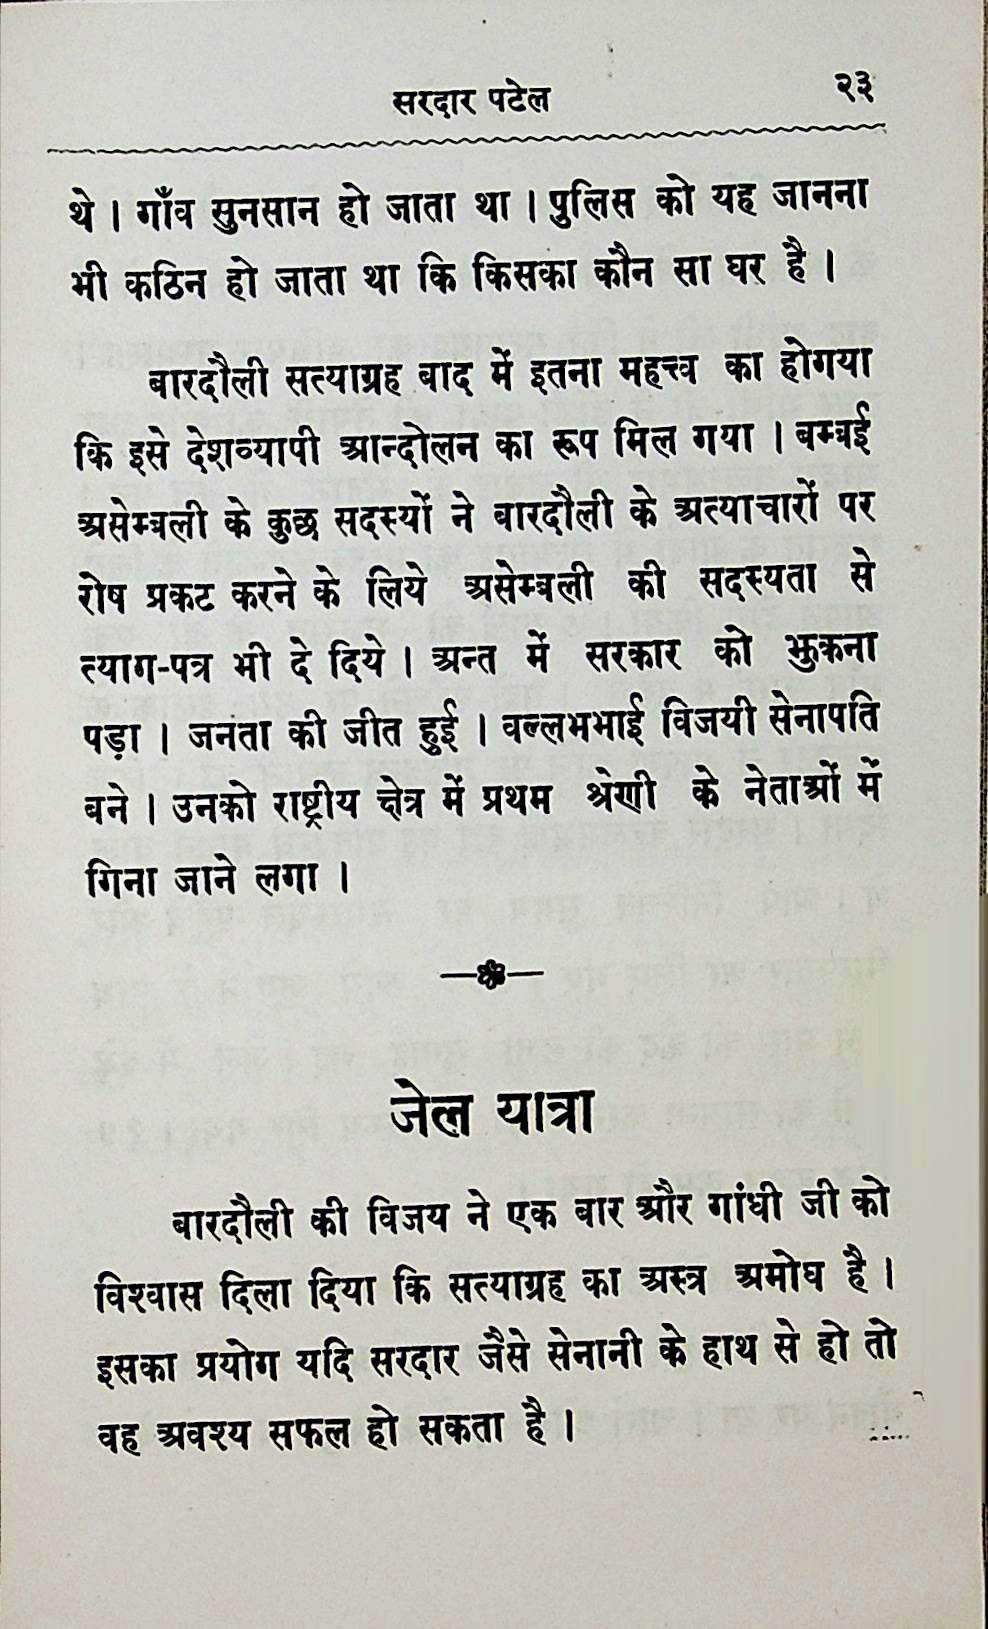 सरदार पटेल २३
थे । गाँव सुनसान हो जाता था । पुलिस को यह जानना
भी कठिन हो जाता था कि किसका कौन सा घर है ।
बारदौली सत्याग्रह बाद में इतना महत्त्व का होगया
कि इसे देशव्यापी आन्दोलन का रूप मिल गया । बम्बई
असेम्बली के कुछ सदस्यों ने बारदौली के अत्याचारों पर
रोष प्रकट करने के लिये असेम्बली की सदस्यता से
त्याग-पत्र भी दे दिये । अन्त में सरकार को झुकना
पड़ा । जनता की जीत हुई । वल्लभभाई विजयी सेनापति
बने । उनको राष्ट्रीय क्षेत्र में प्रथम श्रेणी के नेताओं में
गिना जाने लगा ।
जेल यात्रा
बारदौली की विजय ने एक बार और गांधी जी को
विश्वास दिला दिया कि सत्याग्रह का अस्त्र अमोघ है ।
इसका प्रयोग यदि सरदार जैसे सेनानी के हाथ से हो तो
वह अवश्य सफल हो सकता है ।